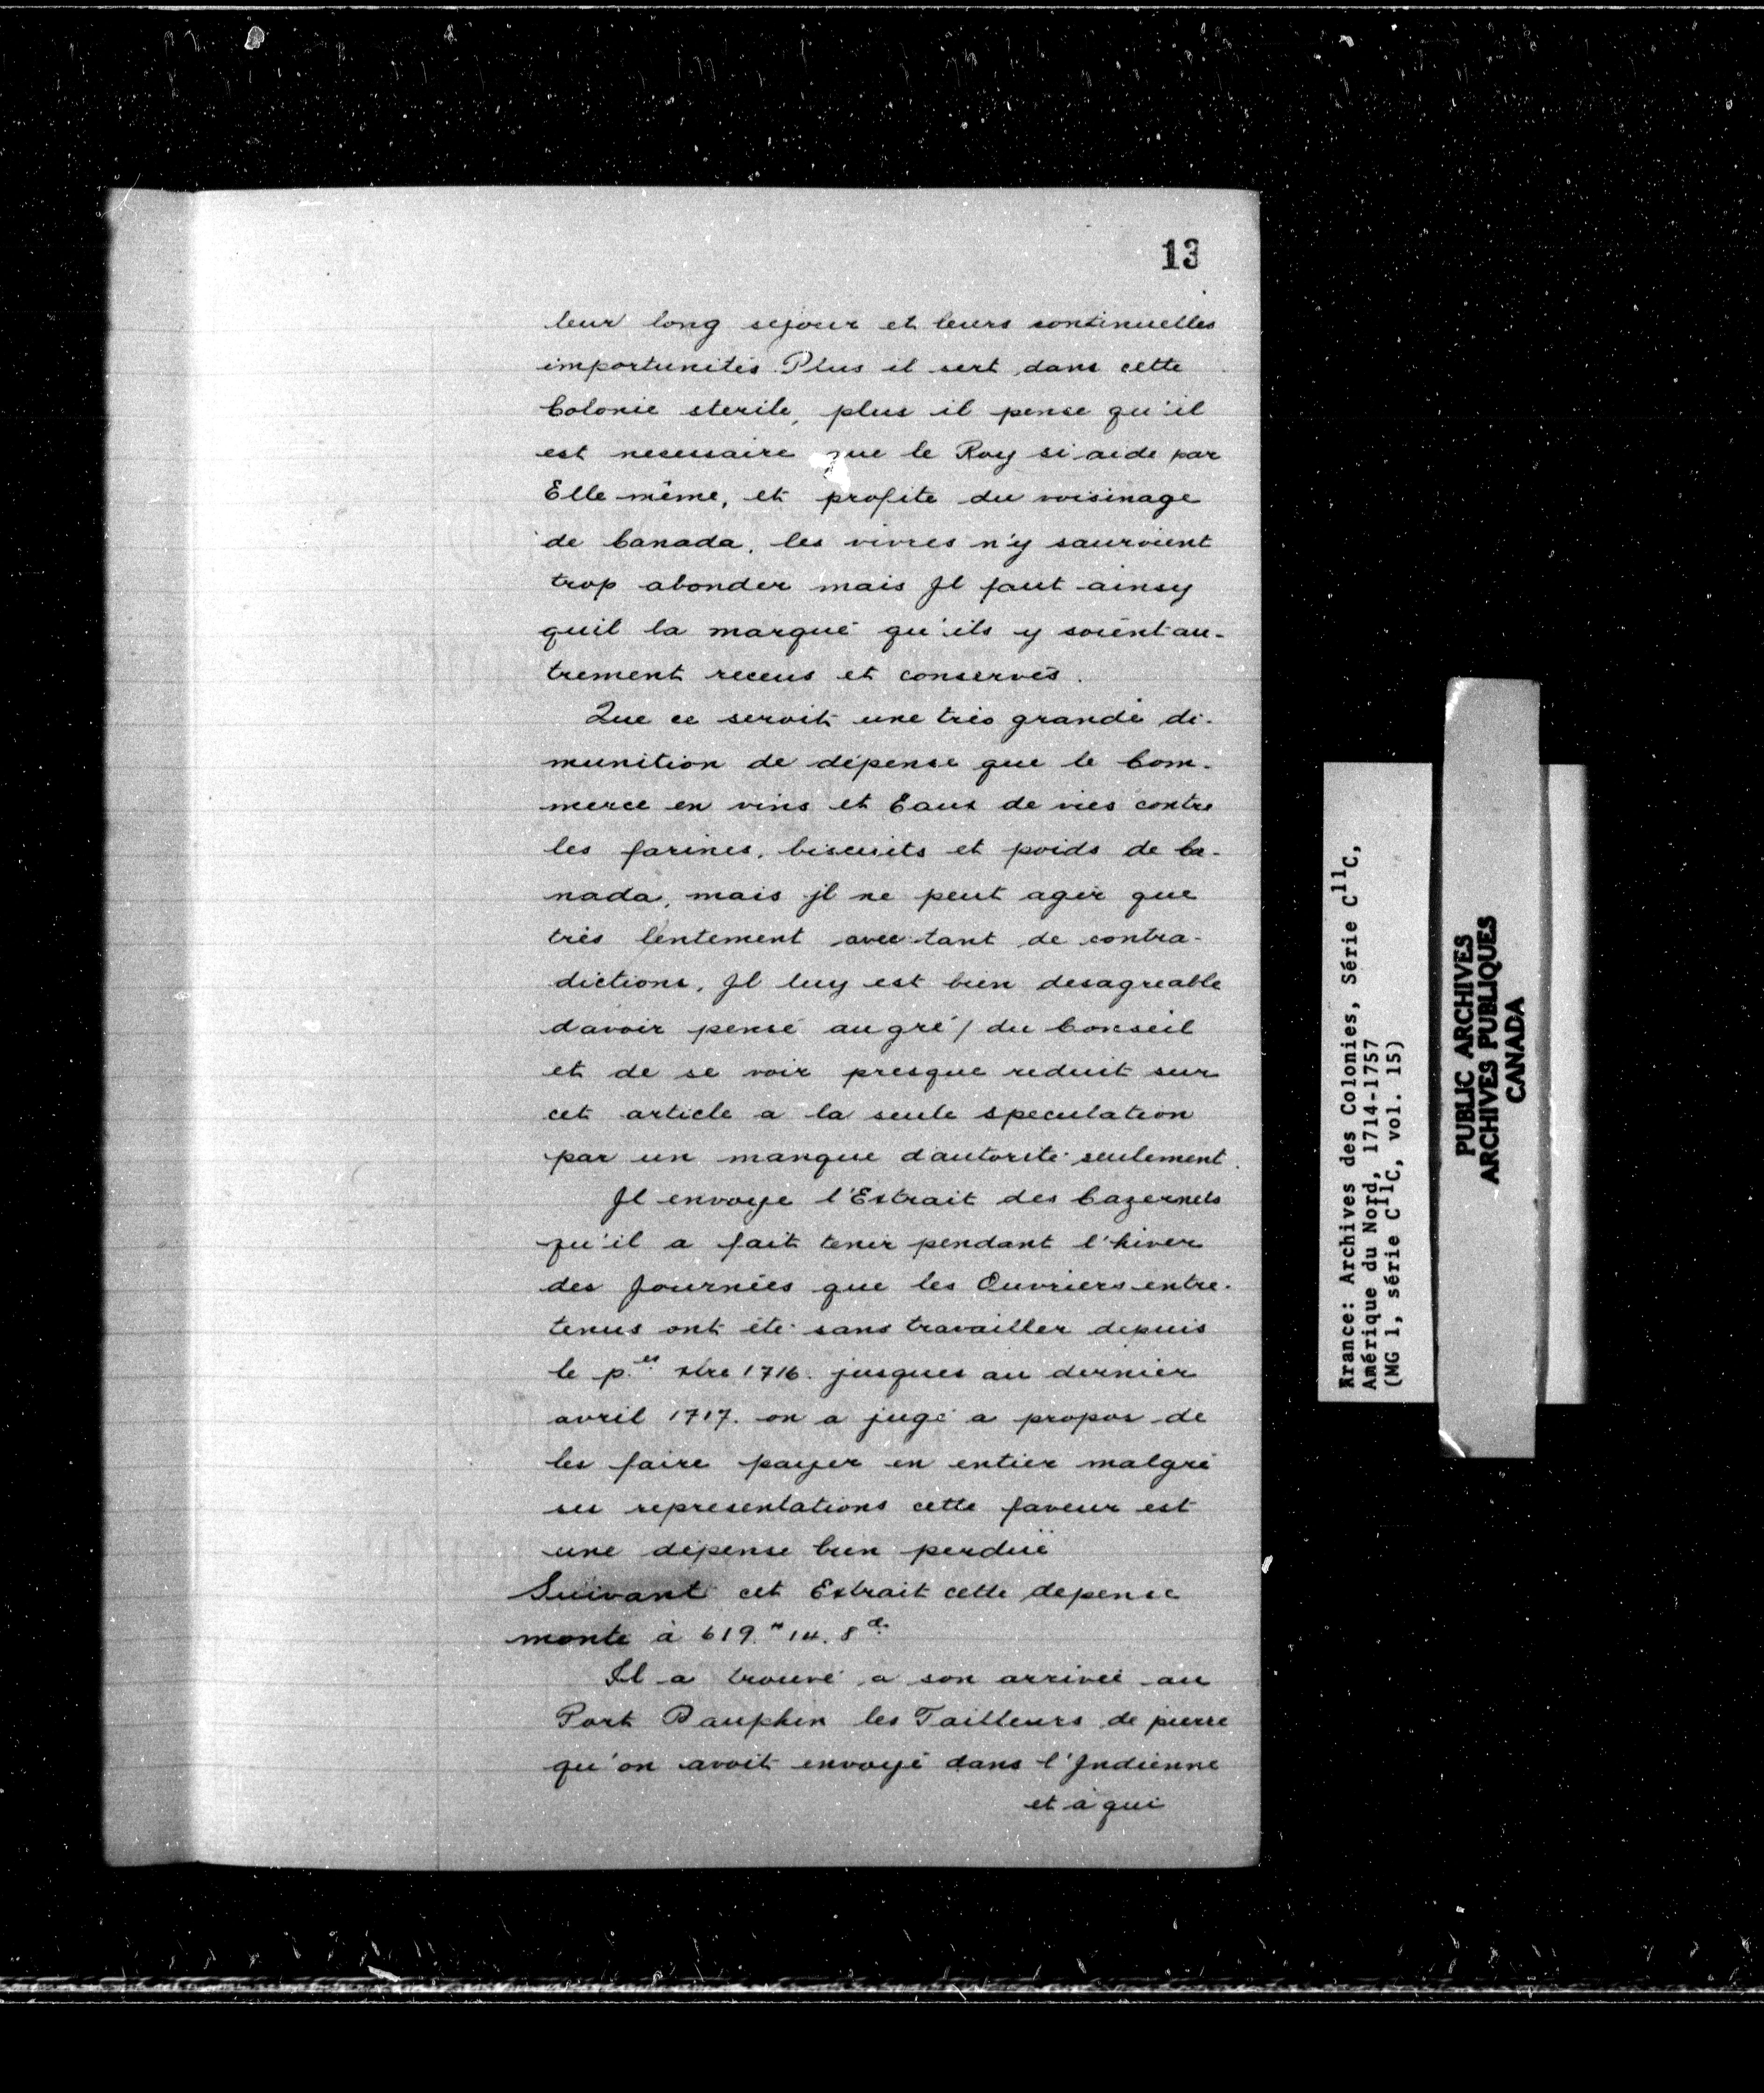 13
leur long sejour et leurs continuelles
importunités. Plus il sert dans cette
Colonie sterile, plus il pense qu'il
est necessaire que le Roy si aide par
Elle même, et profite du voisinage
de Canada, les vivres n'y sauroient
trop abonder mais Jl faut ainsy
quil la marqué qu'ils y soient au-
trement receus et conservés.
Que ce seroit une très grande di-
munition de dépense que le Com-
merce en vins et Eaux de vies contre
les farines, biscuits et poids de Ca-
nada, mais jl ne peut agir que
très lentement avec tant de contra-
dictions, Jl luy est bien desagreable
davoir pensé au gré / du Conseil
et de se voir presque reduit sur
cet article a la seule speculation
par un manque d'autorité seulement.
Jl envoye l'Extrait des Cazernets
qu'il a fait tenir pendant l'hiver
des Journées que les Ouvriers entre-
tenus ont été sans travailler depuis
le p.er xbre 1716. jusques au dernier
avril 1717. on a jugé a propos de
les faire payer en entier malgré
ses representations cette faveur est
une dépense bien perdüe
Suivant cet Extrait cette depense
monte à 619.# 14. 8 d.
Il a trouvé a son arrivée au
Port Dauphin les Tailleurs de pierre
qu'on avoit envoyé dans l'Jndienne
et à qui
France: Archives des Colonies, Série C11C,
Amérique du Nord, 1714-1757
(MG 1, série C11C, vol. 15)
PUBLIC ARCHIVES
ARCHIVES PUBLIQUES
CANADA